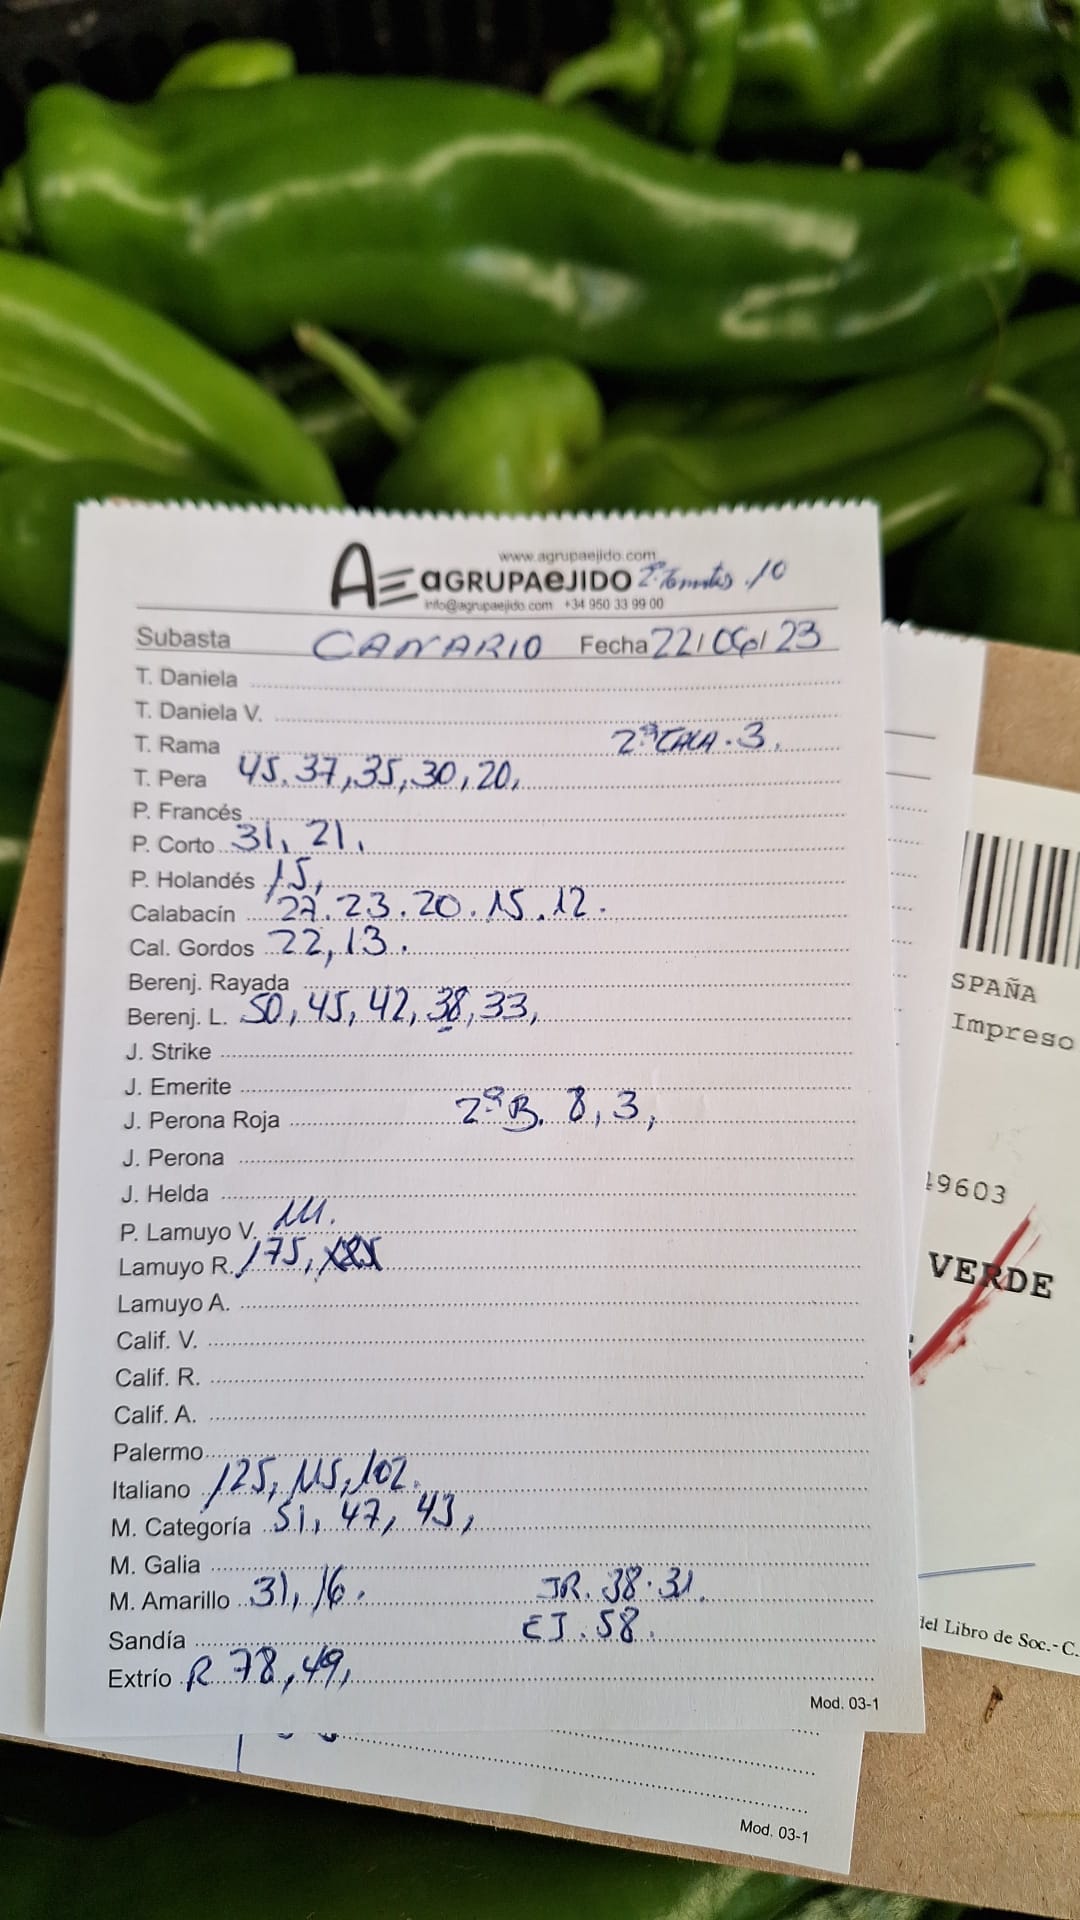 www.agrupaejido.com
AE aGRUPAeJIDO 2ª Tomates. 10
info@agrupaejido.com +34 950 33 99 00
Subasta CANARIO Fecha 22/06/23
T. Daniela
T. Daniela V.
T. Rama 2ª CALA. 3,
T. Pera 45. 37, 35, 30, 20,
P. Francés
P. Corto 31, 21,
P. Holandés 15,
Calabacín 27. 23. 20. 15. 12.
Cal. Gordos 22, 13.
Berenj. Rayada
Berenj. L. 50, 45, 42, 38, 33,
J. Strike
J. Emerite
J. Perona Roja 2ª B. 8, 3,
J. Perona
J. Helda
P. Lamuyo V. 111.
Lamuyo R. 175,
Lamuyo A.
Calif. V.
Calif. R.
Calif. A.
Palermo
Italiano 125, 115, 102.
M. Categoría 51, 47, 43,
M. Galia
M. Amarillo 31, 16. JR. 38. 31.
Sandía EJ. 58.
Extrío R 78, 49,
Mod. 03-1
Mod. 03-1
SPAÑA
Impreso
19603
VERDE
del Libro de Soc.- C.